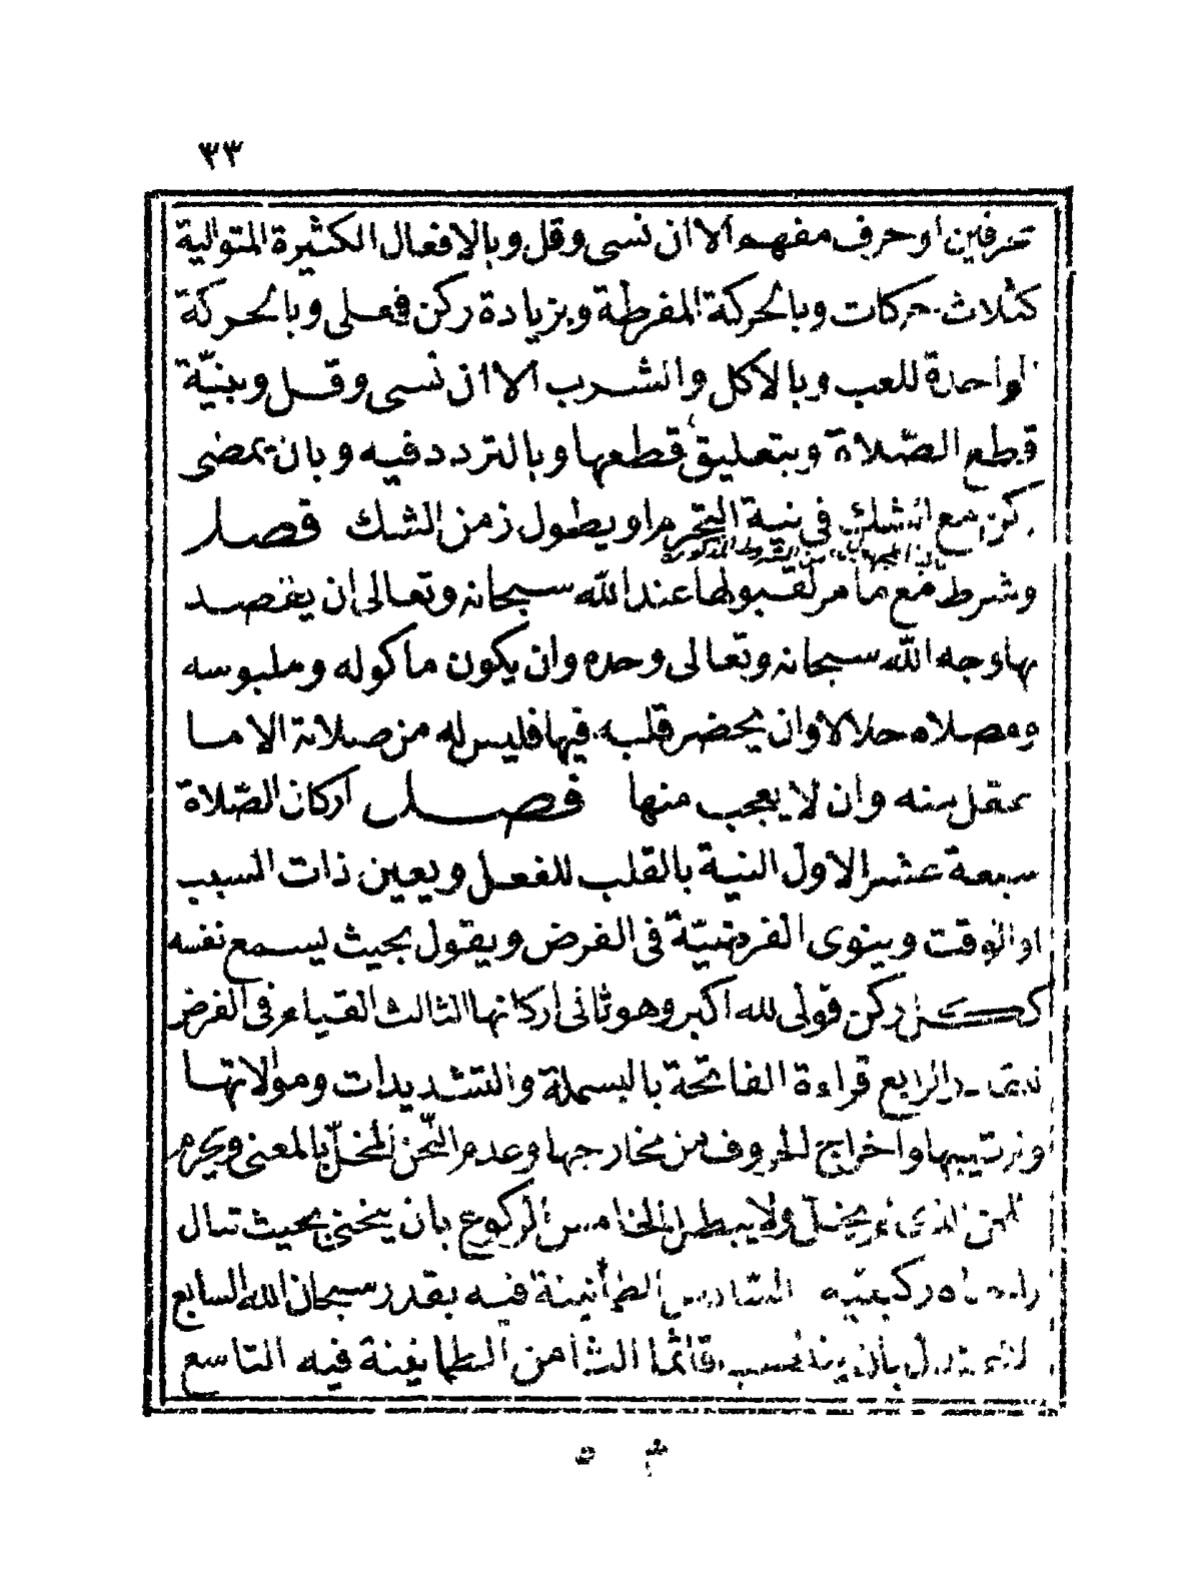 ٣٣
بحرفين او حرف مفهم الا ان نسى وقل وبالافعال الكثيرة المتوالية
كثلاث حركات وبالحركة المفرطة وبزيادة ركن فعلى وبالحركة
الواحدة للعب وبالاكل والشرب الا ان نسى وقل وبنيّة
قطع الصّلاة وبتعليق قطعها وبالتردد فيه وبان يمضى
ركن مع الشك فى نية التحرم او يطول زمن الشك فصل
من الشروط المذكورة
وشرط مع ما مر لقبولها عند الله سبحانه وتعالى ان يقصد
بها وجه الله سبحانه وتعالى وحده وان يكون ماكوله وملبوسه
ومصلاه حلالا وان يحضر قلبه فيها فليس له من صلاته الا ما
عقل منه وان لا يعجب منها فصل اركان الصّلاة
سبعة عشر الاول النية بالقلب للفعل ويعين ذات السبب
او الوقت وينوى الفرضيّة فى الفرض ويقول بحيث يسمع نفسه
ككل ركن قولى لله اكبر وهو ثانى اركانها الثالث القيام فى الفرض
الرابع قراءة الفاتحة بالبسملة والتشديدات وموالاتها
وترتيبها واخراج الحروف من مخارجها وعدم اللّحن المخلّ بالمعنى ويحرم
اللحن الذى لم يخل ولا يبطل الخامس الركوع بان ينحنى بحيث تنال
راحتاه ركبتيه السّادس الطمأنينة فيه بقدر سبحان الله السابع
الاعتدال بان ينتصب قائما الثامن الطمانينة فيه التاسع
م ٥